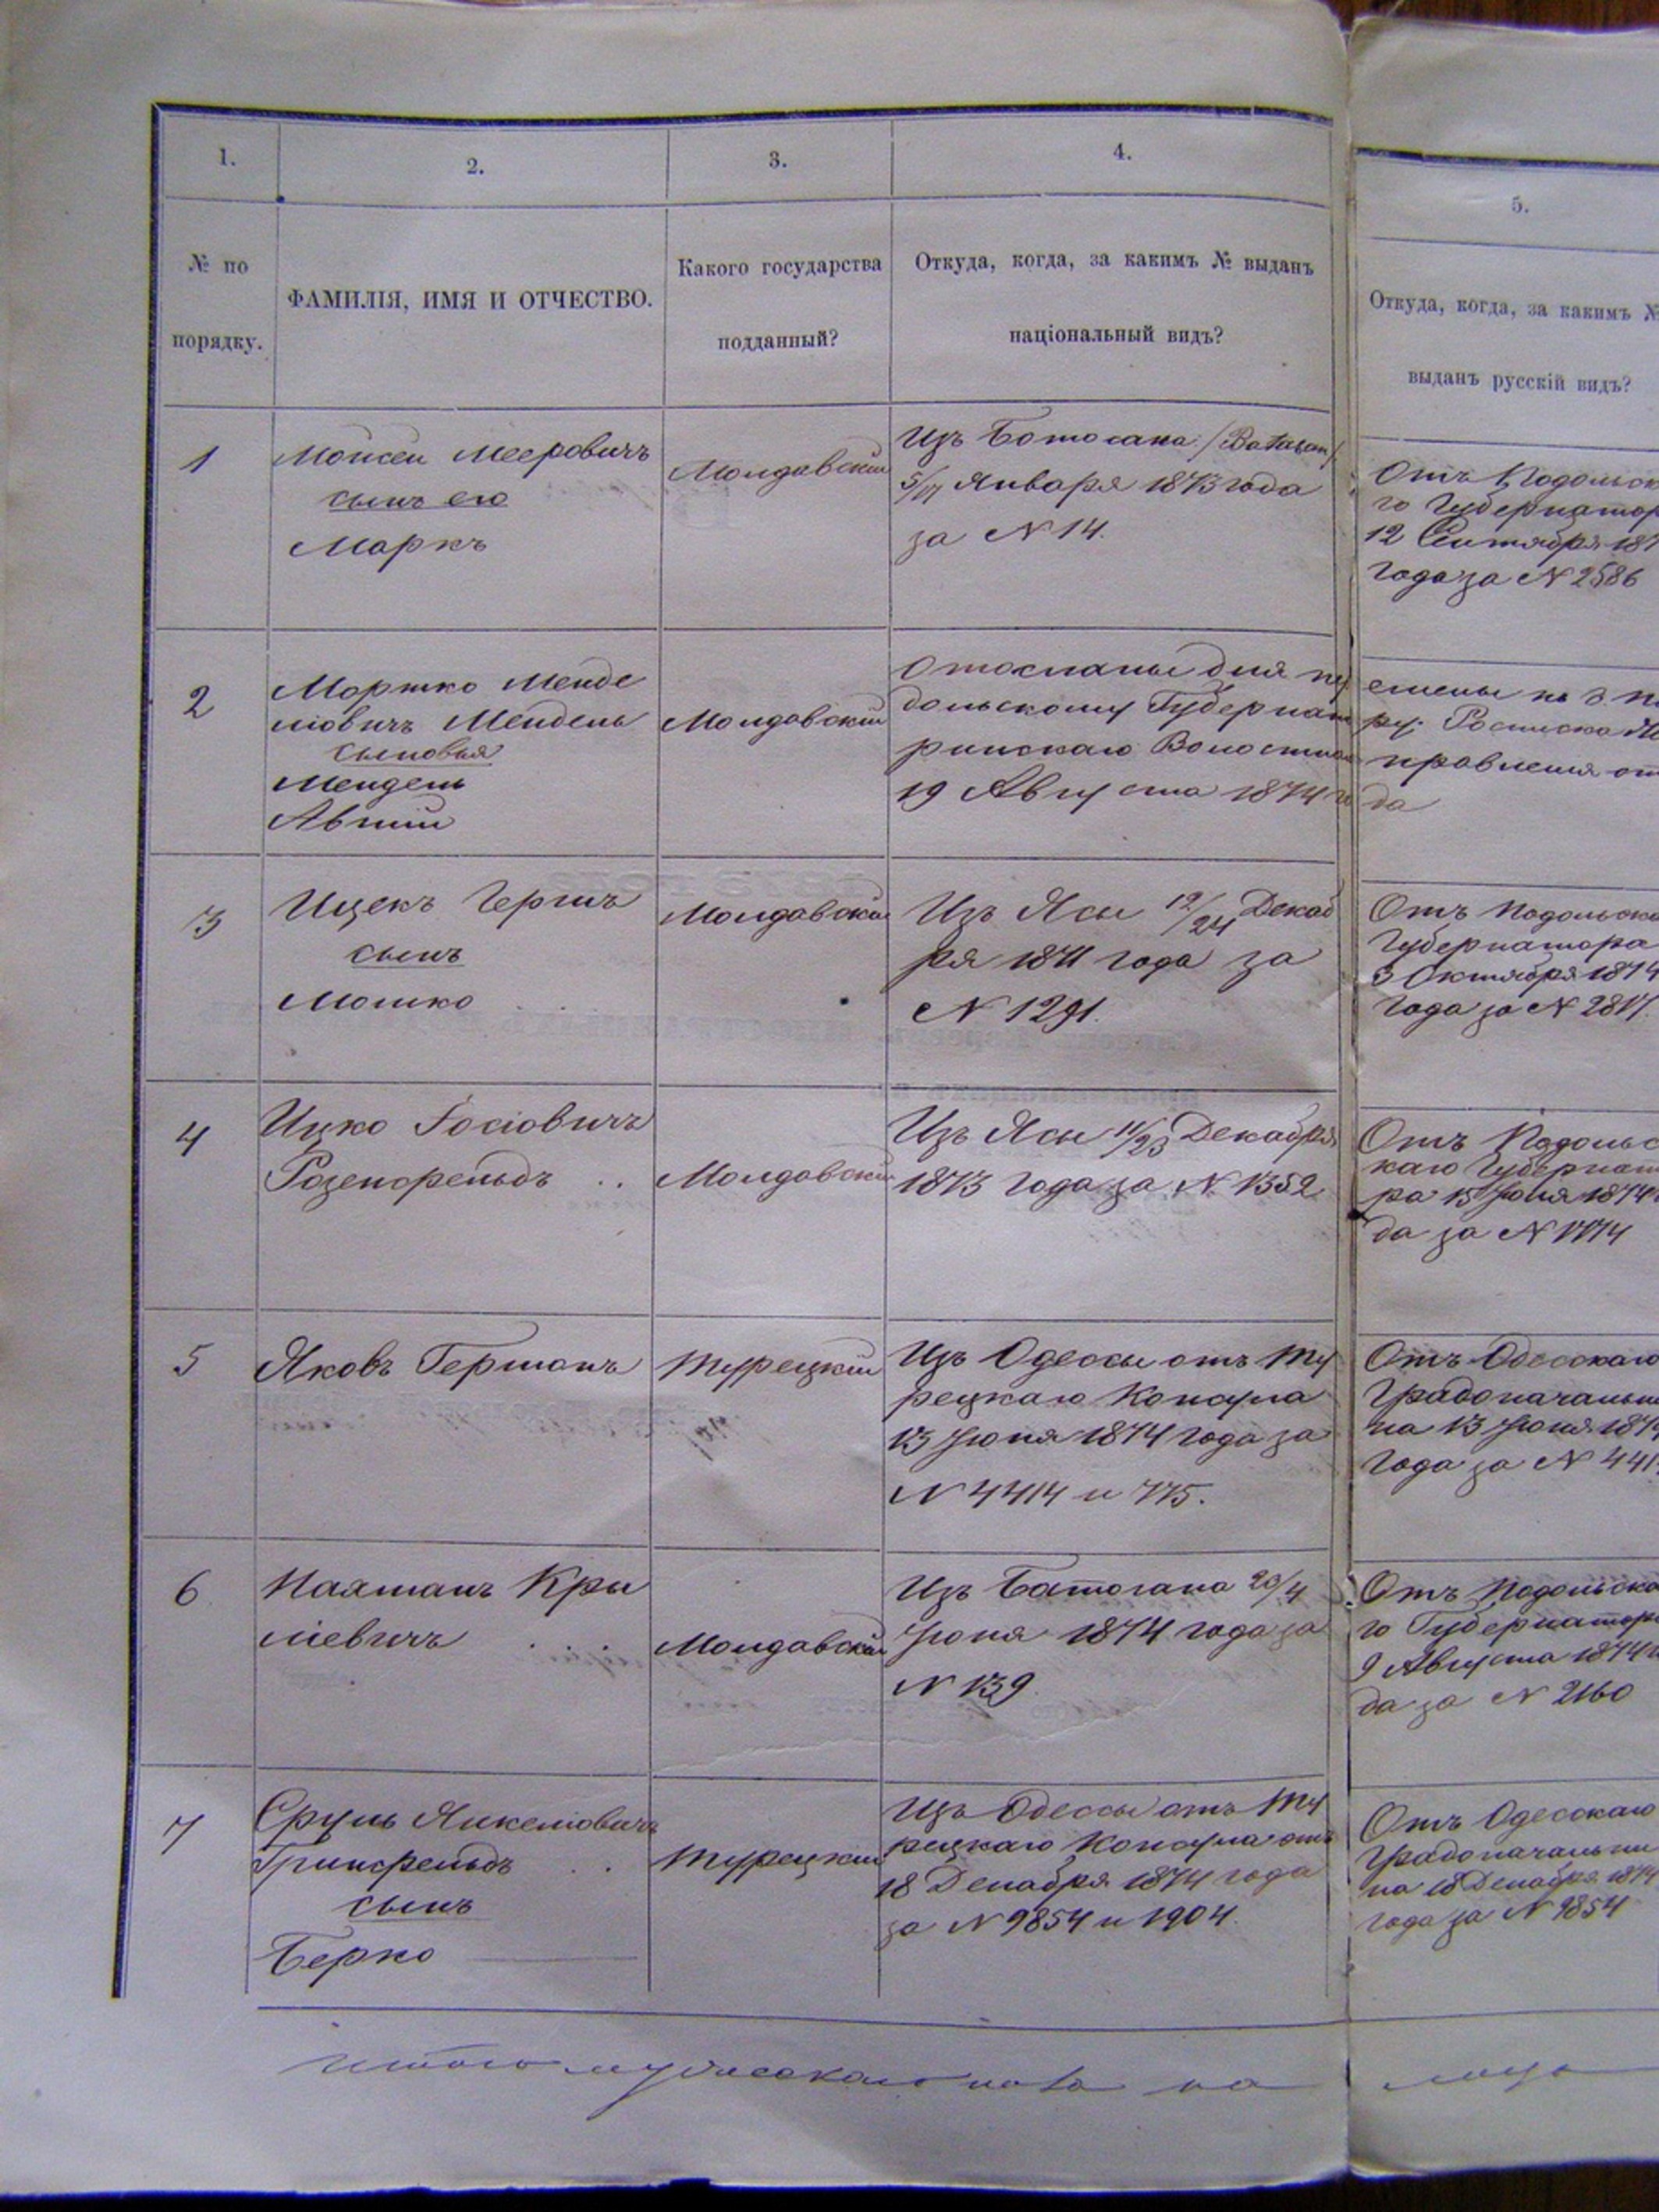 1.
2.
3.
4.
5.
№ по
порядку.
ФАМИЛІЯ, ИМЯ И ОТЧЕСТВО.
Какого государства
подданный?
Откуда, когда, за какимъ № выданъ
національный видъ?
Откуда, когда, за какимъ №
выданъ русскій видъ?
1
Мойсей Мееровичъ
сынъ его
Маркъ
Молдавскій
Изъ Ботосана /Batasan/
5/17 Января 1873 года
за № 14.
Отъ Подольска
го Губернатор
12 Сентября 187
года за № 2586
2
Мортко Менде
ліовичъ Мендель
сыновья
Мендель
Молдавскій
Отосланы для пер
дольскому Губернат
ринскаго Волостнаго
19 Августа 1874 го
емены на 3. По
ру. Росписка
правленія от
да
3
Ицекъ Гершъ
сынъ
Мошко
Молдавскій
Изъ Ясы 12/24 Декаб
ря 1871 года за
№ 1291.
Отъ Подольска
Губернатора
3 Октября 1874
года за № 2817.
4
Ицко Іосіовичъ
Розенфельдъ . .
Молдавскій
Изъ Ясы 11/23 Декабря
1873 года за № 1352.
Отъ Подольс
каго Губернат
ра 15 Іюля 1874
да за № 1774
5
Яковъ Германъ
Турецкій
Изъ Одессы отъ Ту
рецкаго Консула
13 Іюня 1874 года за
№ 4414 и 775.
Отъ Одесскаго
Градоначальни
ка 13 Іюня 1874
года за № 441
6
Нахманъ Кры
ліевичъ . . .
Молдавскій
Изъ Батогана 20/4
Іюня 1874 года за
№ 139
Отъ Подольска
го Губернатора
9 Августа 1874 го
да за № 2160
7
Сруль Янкеліовичъ
Гринфельдъ . .
сынъ
Берко
Турецкій
Изъ Одессы отъ Ту
рецкаго Консула отъ
18 Декабря 1874 года
за № 9854 и 1904.
Отъ Одесскаго
Градоначальни
ка 18 Декабря 1874
года за № 9854
Итого мужескаго пола